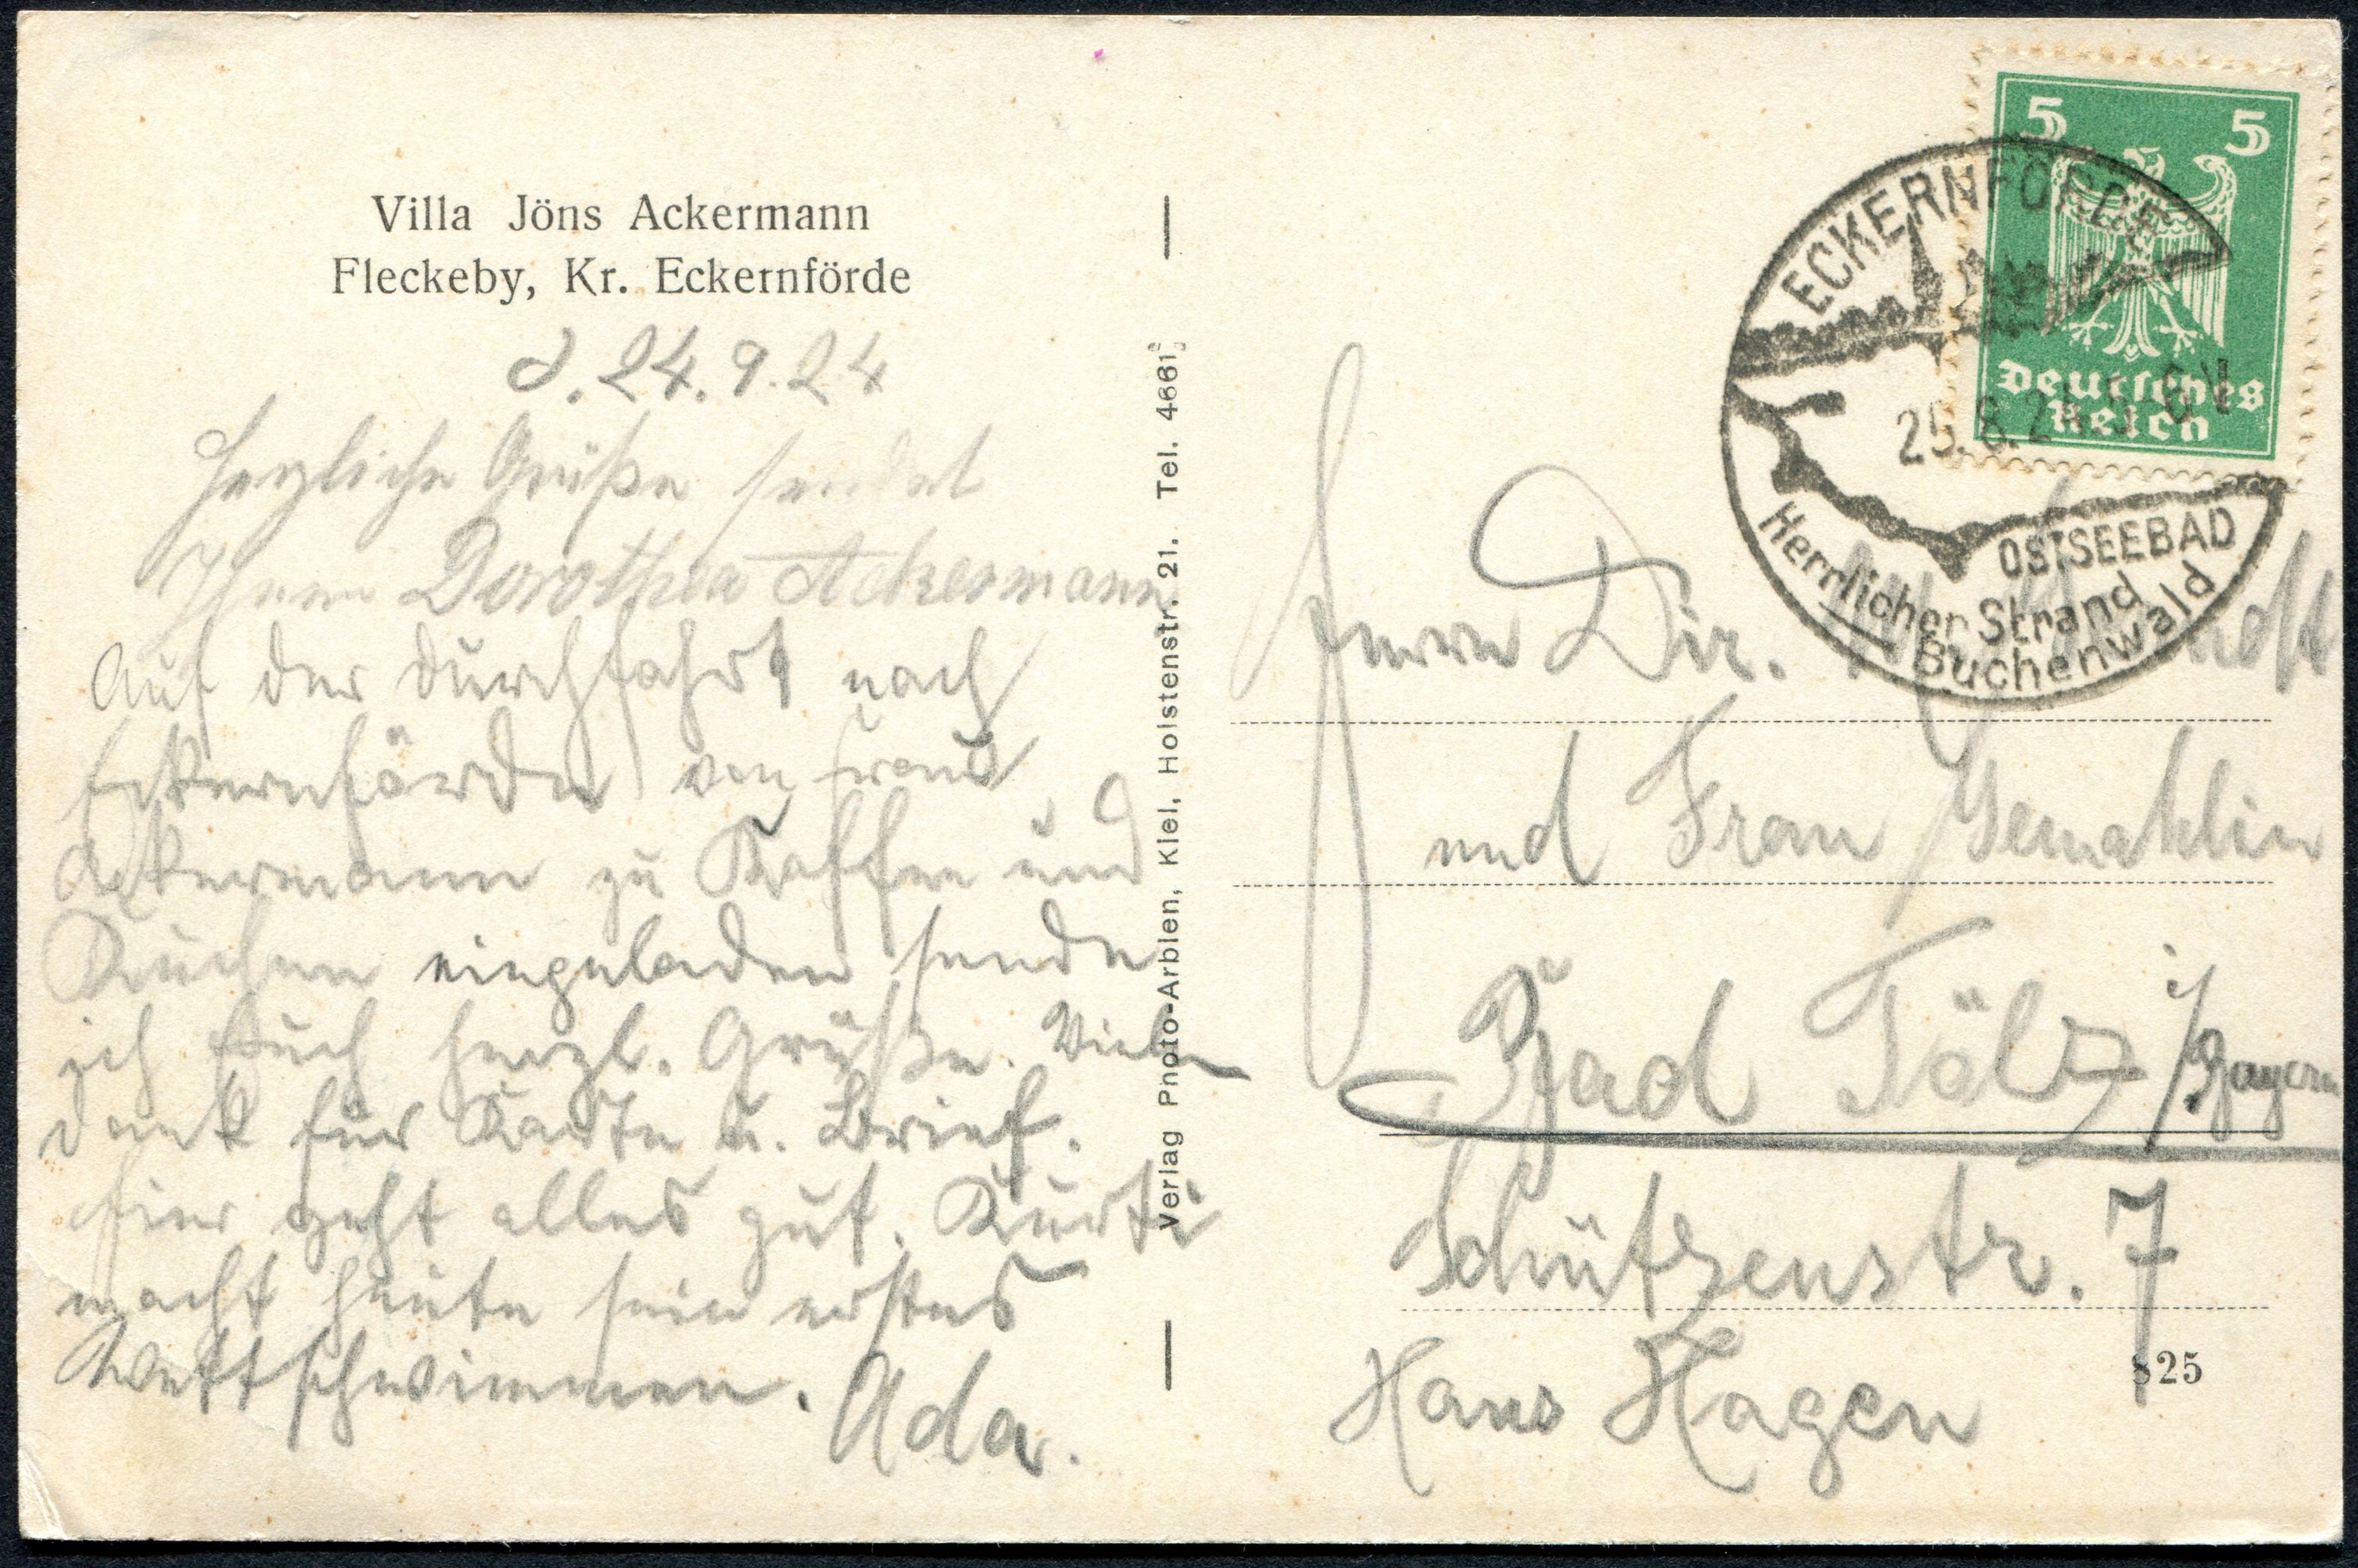 Villa Jöns Ackermann
Fleckeby, Kr. Eckernförde
d. 24. 9. 24
Herzliche Grüße sendet
Ihnen Dorothea Ackermann
Auf der Durchfahrt nach
Eckernförde von Frau
Ackermann zu Kaffee und
Kuchen eingeladen sende
ich Euch herzl. Grüße. Vielen
Dank für Karte u. Brief.
Hier geht alles gut. Kurti
macht heute sein erstes
Wettschwimmen. Ada.
Verlag Photo-Arbien, Kiel, Holstenstr. 21. Tel. 4661
5 5
Deutsches
Reich
ECKERNFÖRDE
OSTSEEBAD
Herrlicher Strand
Buchenwald
Herrn Dir.
und Frau Gemahlin
Bad Tölz i/Bayern
Schützenstr. 7
Haus Hagen
825